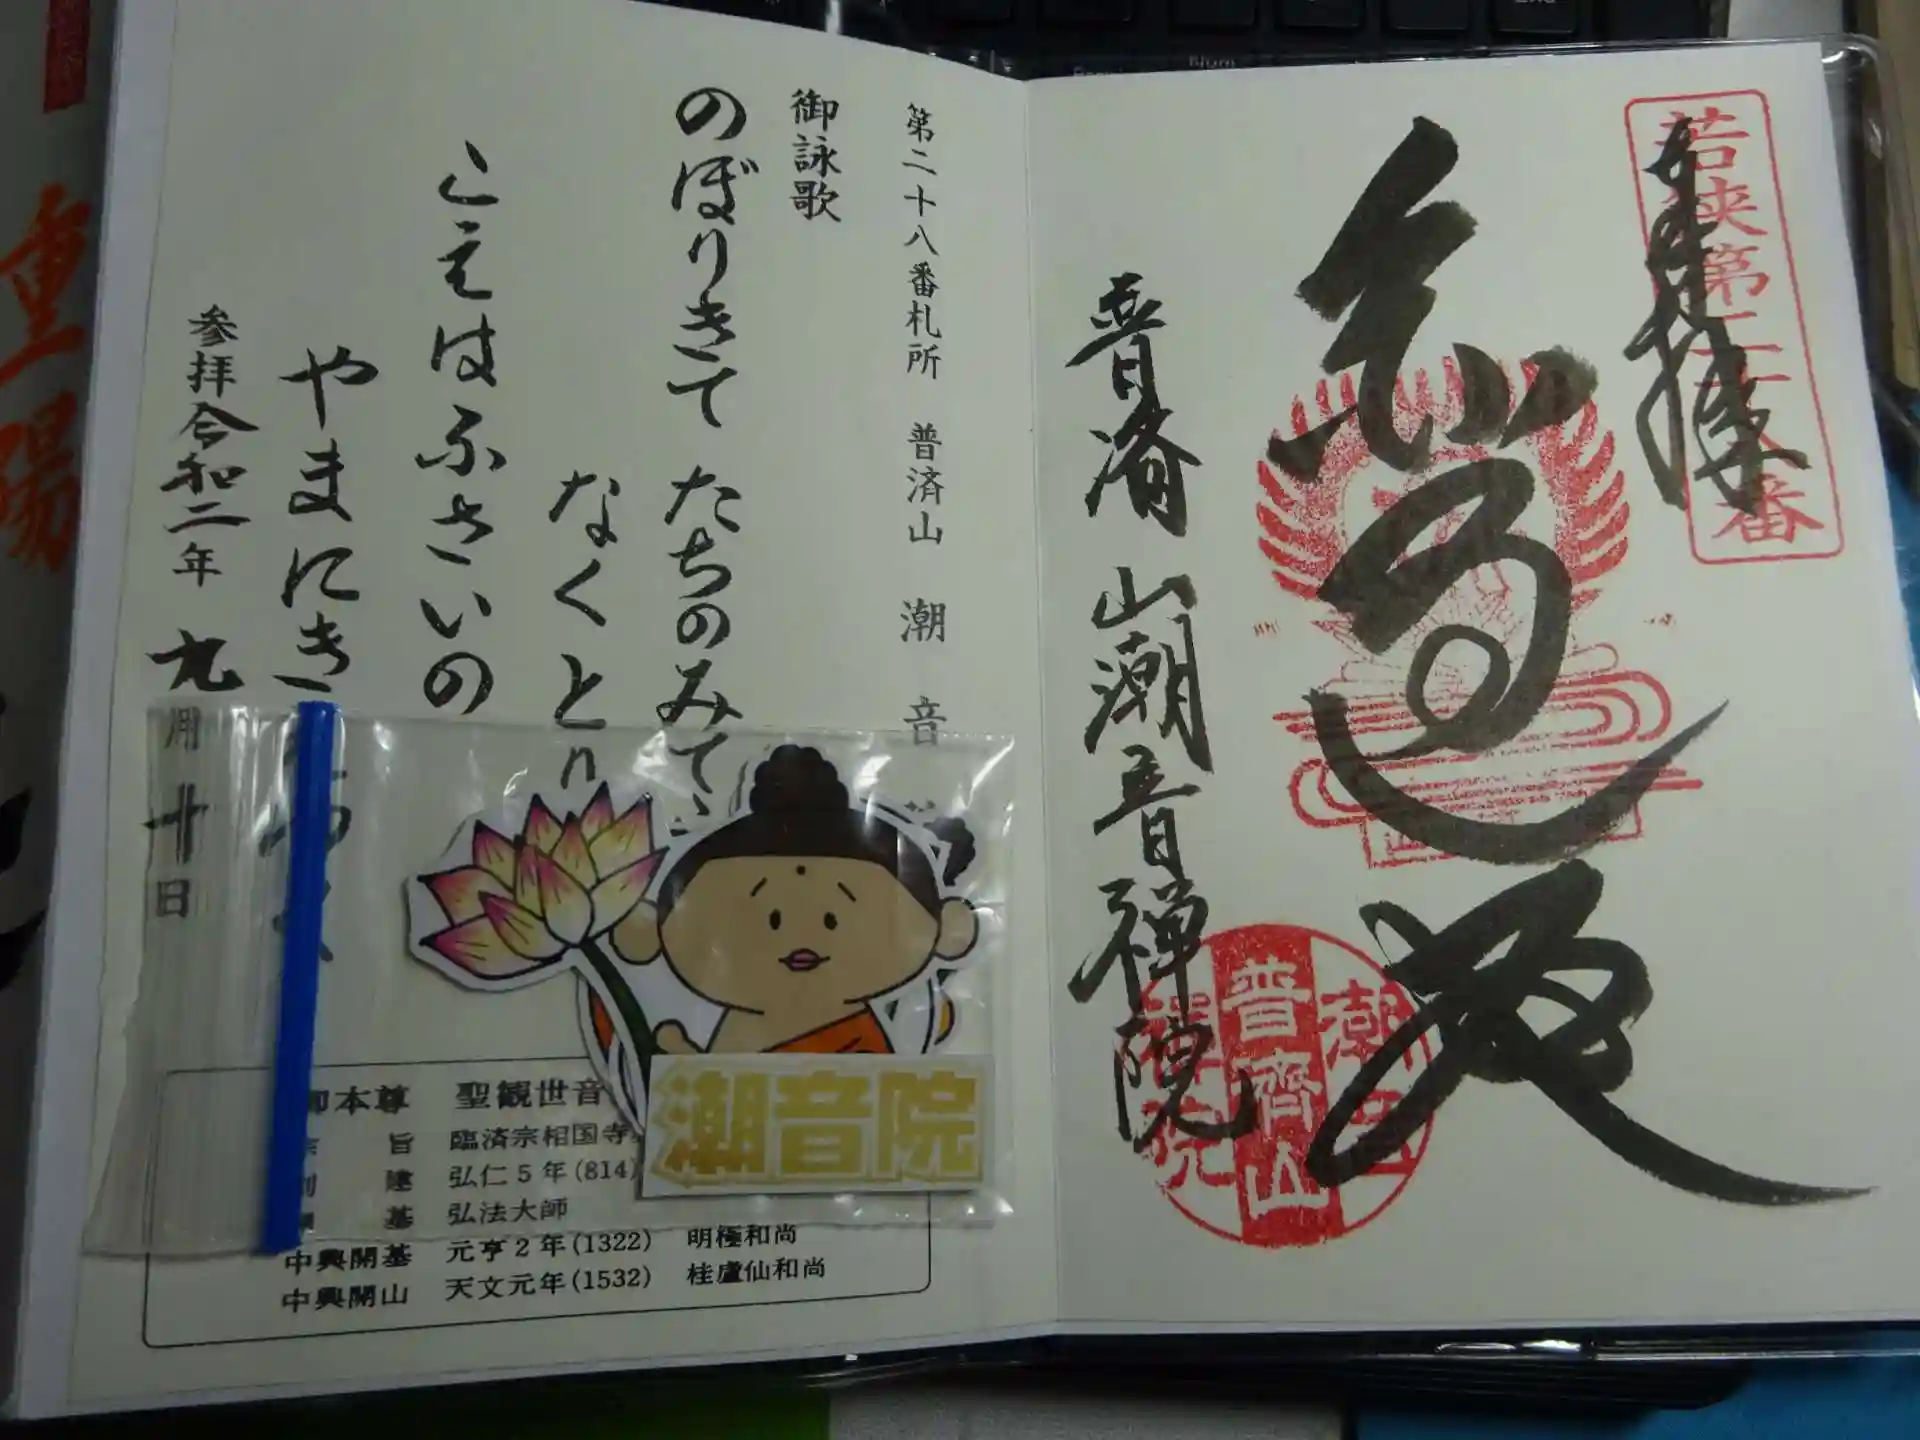 奉拝
若狭第二十八番
普済山潮音禅院
普濟山
第二十八番札所 普済山 潮音
御詠歌
のぼりきて たちのみて
なくとり
こえはふさいの
やまにき
参拝令和二年 九月十日
潮音院
御本尊 聖観世音
旨 臨済宗相国寺
建 弘仁5年(814)
基 弘法大師
中興開基 元亨2年(1322) 明極和尚
中興開山 天文元年(1532) 桂盧仙和尚
重陽